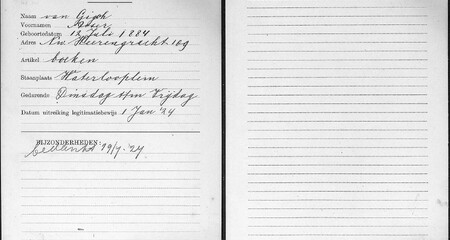 Naam van Gigch
Voornamen Asser
Geboortedatum 12 Juli 1884
Adres Nw Heerengracht 169
Artikel boeken
Staanplaats Waterlooplein
Gedurende Dinsdag t/m Vrijdag
Datum uitreiking legitimatiebewijs 1 Jan '24
BIJZONDERHEDEN:
19/7-24